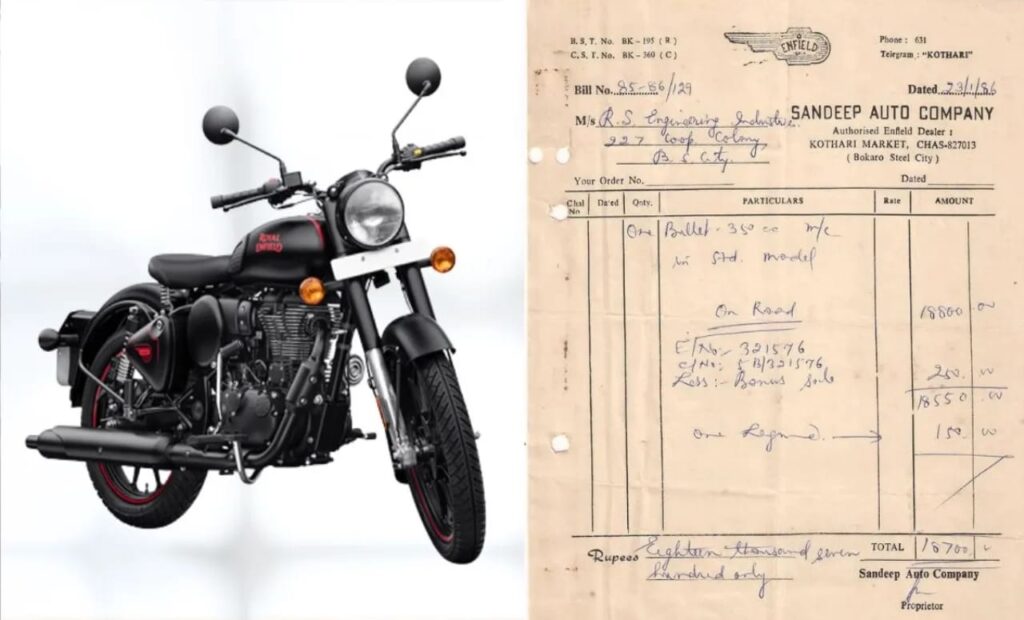 ROYAL
ENFIELD
B.S.T. No. BK-195 (R)
C.S.T. No. BK-360 (C)
ENFIELD
Phone : 631
Telegram : "KOTHARI"
Bill No. 85-86/129
Dated 23/1/86
M/s R.S. Engineering Industries
227 Coop Colony,
B.S. City.
SANDEEP AUTO COMPANY
Authorised Enfield Dealer :
KOTHARI MARKET, CHAS-827013
( Bokaro Steel City )
Your Order No.
Dated
Chal No Dated Qnty. PARTICULARS Rate AMOUNT
One Bullet-350 cc m/c
in Std. model
On Road 18800.00
E/No:- 321576
C/No: 5B/321576
Less:- Bonus 250.00
18550.00
One 150.00
Rupees Eighteen thousand seven
hundred only
TOTAL 18700
Sandeep Auto Company
Proprietor